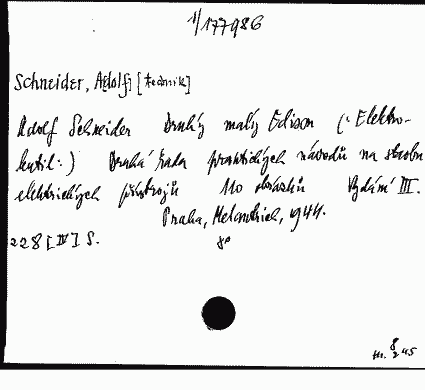 1/177986
Schneider, Adolf [technik]
Adolf Schneider Druhý malý Edison (: Elektro-
kutil :) Druhá řada praktických návodů na stavbu
elektrických přístrojů 110 obrázků Vydání III.
Praha, Melantrich, 1944.
228 [IV] S. 8°
m. 8 245